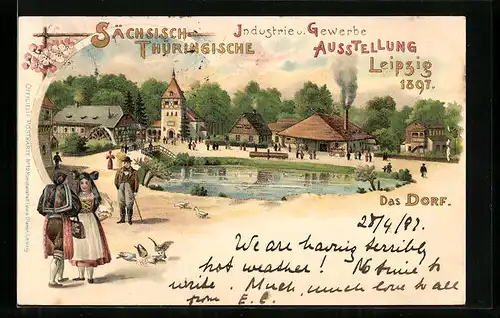 Sächsisch-Thüringische
Industrie u. Gewerbe
Ausstellung
Leipzig
1897.
Das Dorf.
We are having terribly
hot weather! No time to
write. Much, much love to all
from E. C.